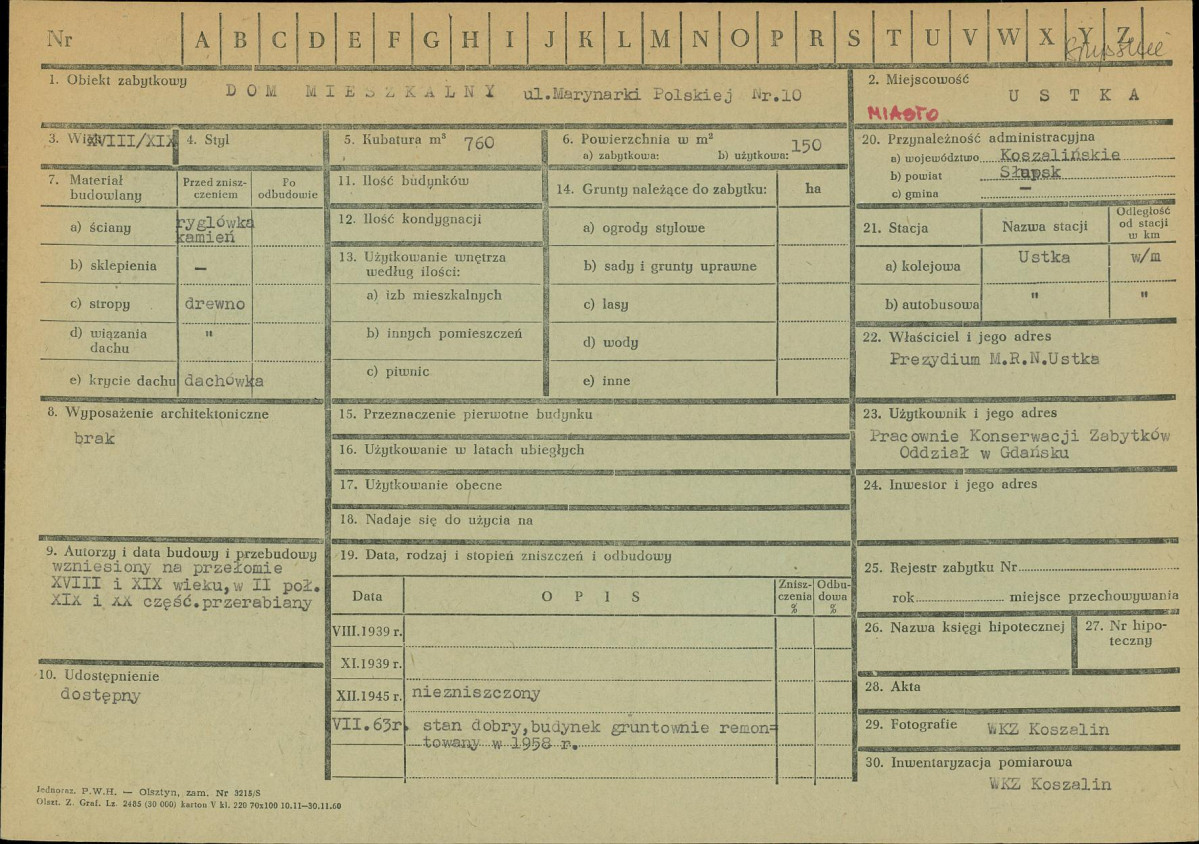 Nr A B C D E F G H I J K L M N O P R S T U V W X Y Z
1. Obiekt zabytkowy
DOM MIESZKALNY ul.Marynarki Polskiej Nr.10
2. Miejscowość
USTKA
MIASTO
3. Wiek XVIII/XIX
4. Styl
5. Kubatura m³ 760
6. Powierzchnia w m²
a) zabytkowa: b) użytkowa: 150
7. Materiał budowlany
Przed znisz-
czeniem
Po
odbudowie
a) ściany ryglówka
kamień
b) sklepienia –
c) stropy drewno
d) wiązania
dachu "
e) krycie dachu dachówka
8. Wyposażenie architektoniczne
brak
9. Autorzy i data budowy i przebudowy
wzniesiony na przełomie
XVIII i XIX wieku,w II poł.
XIX i XX część.przerabiany
10. Udostępnienie
dostępny
11. Ilość budynków
12. Ilość kondygnacji
13. Użytkowanie wnętrza
według ilości:
a) izb mieszkalnych
b) innych pomieszczeń
c) piwnic
14. Grunty należące do zabytku: ha
a) ogrody stylowe
b) sady i grunty uprawne
c) lasy
d) wody
e) inne
15. Przeznaczenie pierwotne budynku
16. Użytkowanie w latach ubiegłych
17. Użytkowanie obecne
18. Nadaje się do użycia na
19. Data, rodzaj i stopień zniszczeń i odbudowy
Data OPIS
Znisz-
czenia
%
Odbu-
dowa
%
VIII.1939 r.
XI.1939 r.
XII.1945 r. niezniszczony
VII.63r. stan dobry,budynek gruntownie remon=
towany w 1958 r.
20. Przynależność administracyjna
a) województwo Koszalińskie
b) powiat Słupsk
c) gmina –
21. Stacja Nazwa stacji
Odległość
od stacji
w km
a) kolejowa Ustka w/m
b) autobusowa " "
22. Właściciel i jego adres
Prezydium M.R.N.Ustka
23. Użytkownik i jego adres
Pracownie Konserwacji Zabytków
Oddział w Gdańsku
24. Inwestor i jego adres
25. Rejestr zabytku Nr
rok miejsce przechowywania
26. Nazwa księgi hipotecznej
27. Nr hipo-
teczny
28. Akta
29. Fotografie WKZ Koszalin
30. Inwentaryzacja pomiarowa
WKZ Koszalin
Jednoraz. P.W.H. — Olsztyn, zam. Nr 3215/S
Olszt. Z. Graf. Lz. 2485 (30 000) karton V kl. 220 70x100 10.11—30.11.60